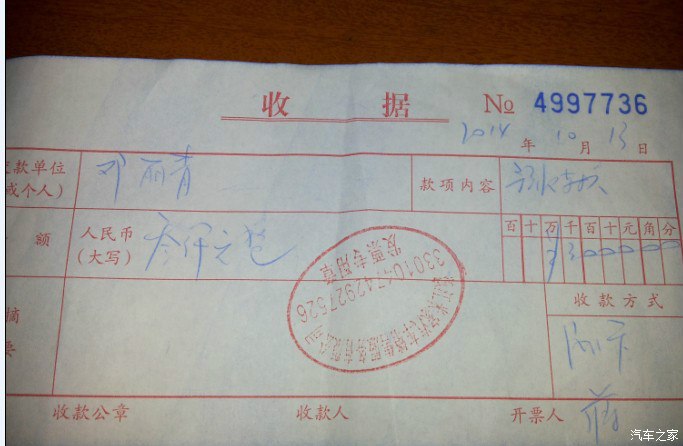 收 据 № 4997736
2014 年 10 月 13 日
交款单位
(或个人)
邓丽青
款项内容
额
人民币
(大写)
叁仟元整
百 十 万 千 百 十 元 角 分
¥ 3 0 0 0 0 0
发票专用章
330104742927526
摘
要
收款方式
刷卡
收款公章 收款人 开票人
汽车之家